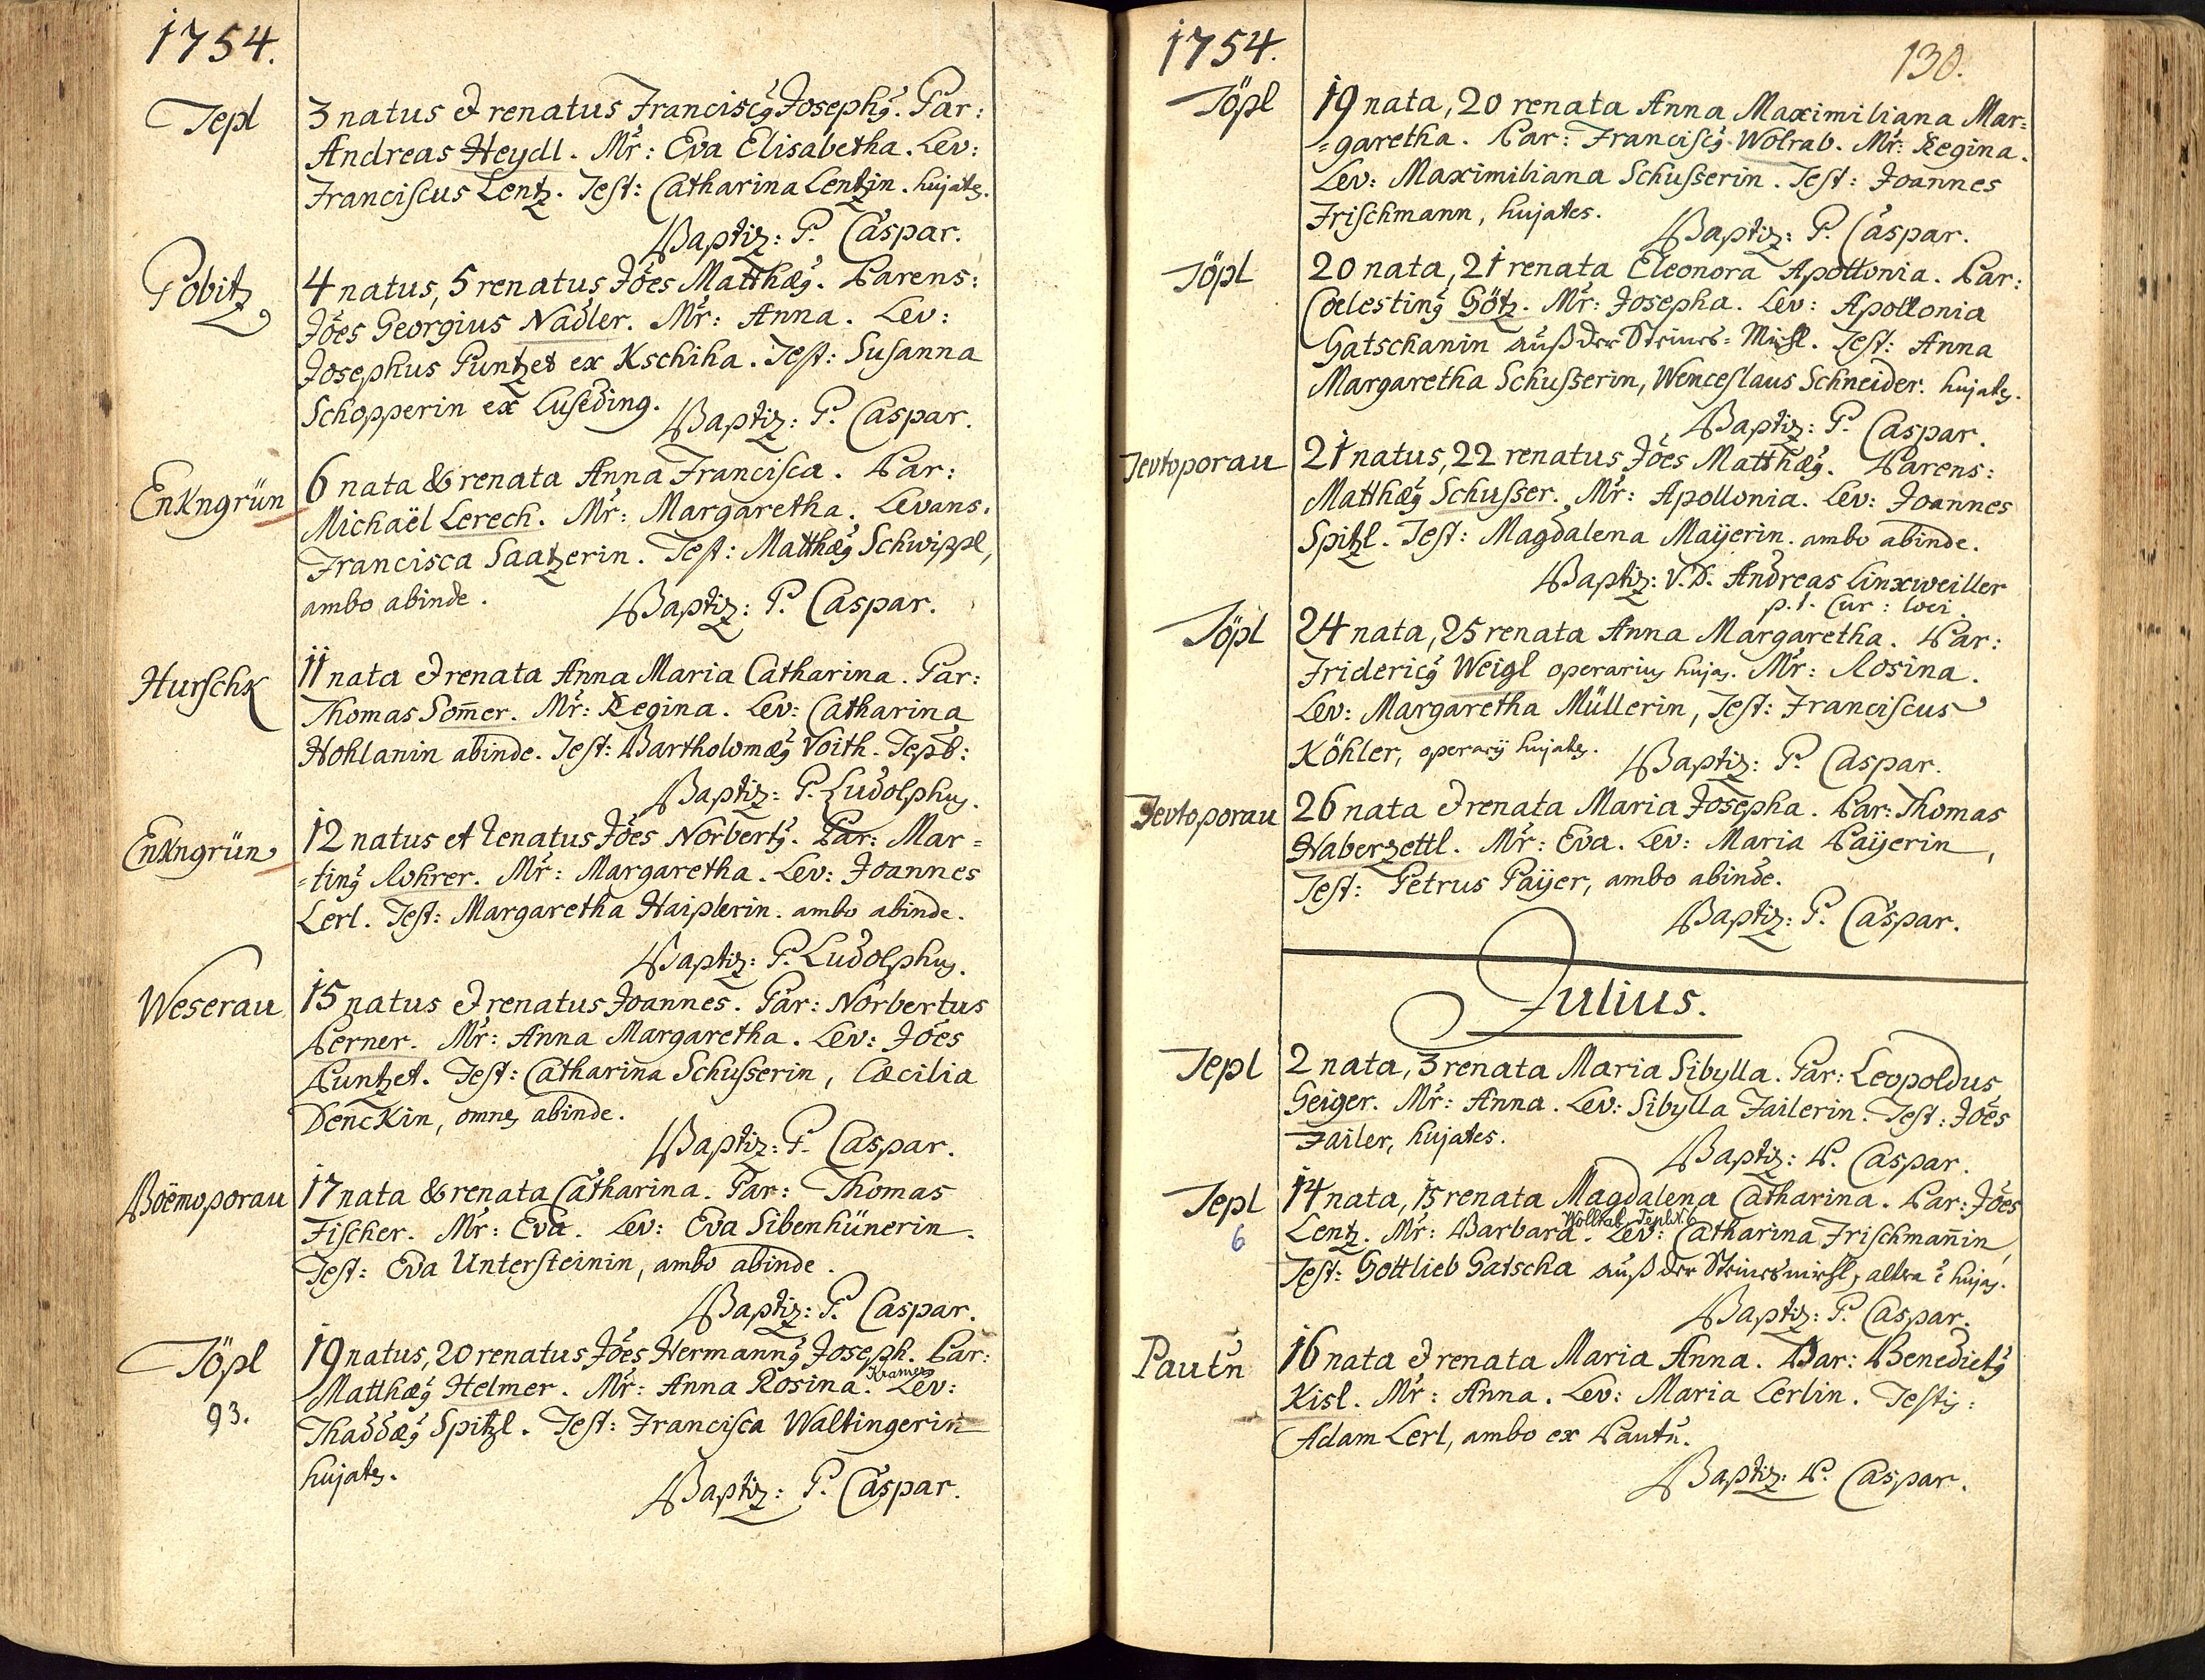 1754.
Tepl
3 natus et renatus Franciscq Josephq. Par:
Andreas Heydl. Mr̃: Eva Elisabetha. Lev:
Franciscus Lentz. Test: Catharina Lentzin. hujates.
Baptiz: P. Caspar.
Pobitz
4 natus, 5 renatus Jões Matthæq. Parens:
Jões Georgius Nadler. Mr̃: Anna. Lev:
Josephus Puntzet ex Kschiha. Test: Susanna
Schopperin ex Luseding.
Baptiz: P. Caspar.
EnKngrün
6 nata & renata Anna Francisca. Par:
Michaël Lerech. Mr̃: Margaretha. Levans.
Francisca Saatzerin. Test: Matthæq Schwippl,
ambo abinde.
Baptiz: P. Caspar.
Hurschk
11 nata et renata Anna Maria Catharina. Par:
Thomas Som̃er. Mr̃: Regina. Lev: Catharina
Hohlanin abinde. Test: Bartholomæq Voith. Tepl:
Baptiz: P. Ludolphus.
EnKngrün
12 natus et renatus Jões Norbertq. Par: Mar=
=tinq Rohrer. Mr̃: Margaretha. Lev: Joannes
Lerl. Test: Margaretha Haiplerin. ambo abinde.
Baptiz: P. Ludolphus.
Weserau
15 natus et renatus Joannes. Par: Norbertus
Perner. Mr̃: Anna Margaretha. Lev: Jões
Puntzet. Test: Catharina Schusserin, Cæcilia
DencKin, omnes abinde.
Baptiz: P. Caspar.
Boëmoporau
17 nata & renata Catharina. Par: Thomas
Fischer. Mr̃: Eva. Lev: Eva Sibenhünerin.
Test: Eva Untersteinin, ambo abinde.
Baptiz: P. Caspar.
Töpl
93.
19 natus, 20 renatus Jões Hermannq Joseph. Par:
Kramer
Matthæq Helmer. Mr̃: Anna Rosina. Lev:
Thaddæq Spitzl. Test: Francisca Waltingerin
hujates.
Baptiz: P. Caspar.
1754.
130.
Töpl
19 nata, 20 renata Anna Maximiliana Mar=
=garetha. Par: Franciscq Wolrab. Mr̃: Regina.
Lev: Maximiliana Schusserin. Test: Joannes
Frischmann, hujates.
Baptiz: P. Caspar.
Töpl
20 nata, 21 renata Eleonora Apollonia. Par:
Coelestinq Götz. Mr̃: Josepha. Lev: Apollonia
Gatschanin auß der Steiners=Mühl. Test: Anna
Margaretha Schusserin, Wenceslaus Schneider. hujates.
Baptiz: P. Caspar.
Tevtoporau
21 natus, 22 renatus Jões Matthæq. Parens:
Matthæq Schusser. Mr̃: Apollonia. Lev: Joannes
Spitzl. Test: Magdalena Maÿerin. ambo abinde.
Baptiz: V.D. Andreas Linxweiller
p.t. Cur: loci.
Töpl
24 nata, 25 renata Anna Margaretha. Par:
Fridericq Weigl operarius hujas. Mr̃: Rosina.
Lev: Margaretha Müllerin, Test: Franciscus
Köhler, operarÿ hujates.
Baptiz: P. Caspar.
Tevtoporau
26 nata et renata Maria Josepha. Par: Thomas
Haberzettl. Mr̃: Eva. Lev: Maria Paÿerin,
Test: Petrus Paÿer, ambo abinde.
Baptiz: P. Caspar.
Julius.
Tepl
2 nata, 3 renata Maria Sibylla. Par: Leopoldus
Geiger. Mr̃: Anna. Lev: Sibylla Failerin. Test: Jões
Failer, hujates.
Baptiz: P. Caspar.
Tepl
6
14 nata, 15 renata Magdalena Catharina. Par: Jões
Wollrab Tepl N. 6
Lentz. Mr̃: Barbara. Lev: Catharina Frischmañin,
Test: Gottlieb Gatscha auß der Steinersmühl, altera ẽ hujas.
Baptiz: P. Caspar.
Pautñ
16 nata et renata Maria Anna. Par: Benedictq
Kisl. Mr̃: Anna. Lev: Maria Lerlin. Testis:
Adam Lerl, ambo ex Pautñ.
Baptiz: P. Caspar.